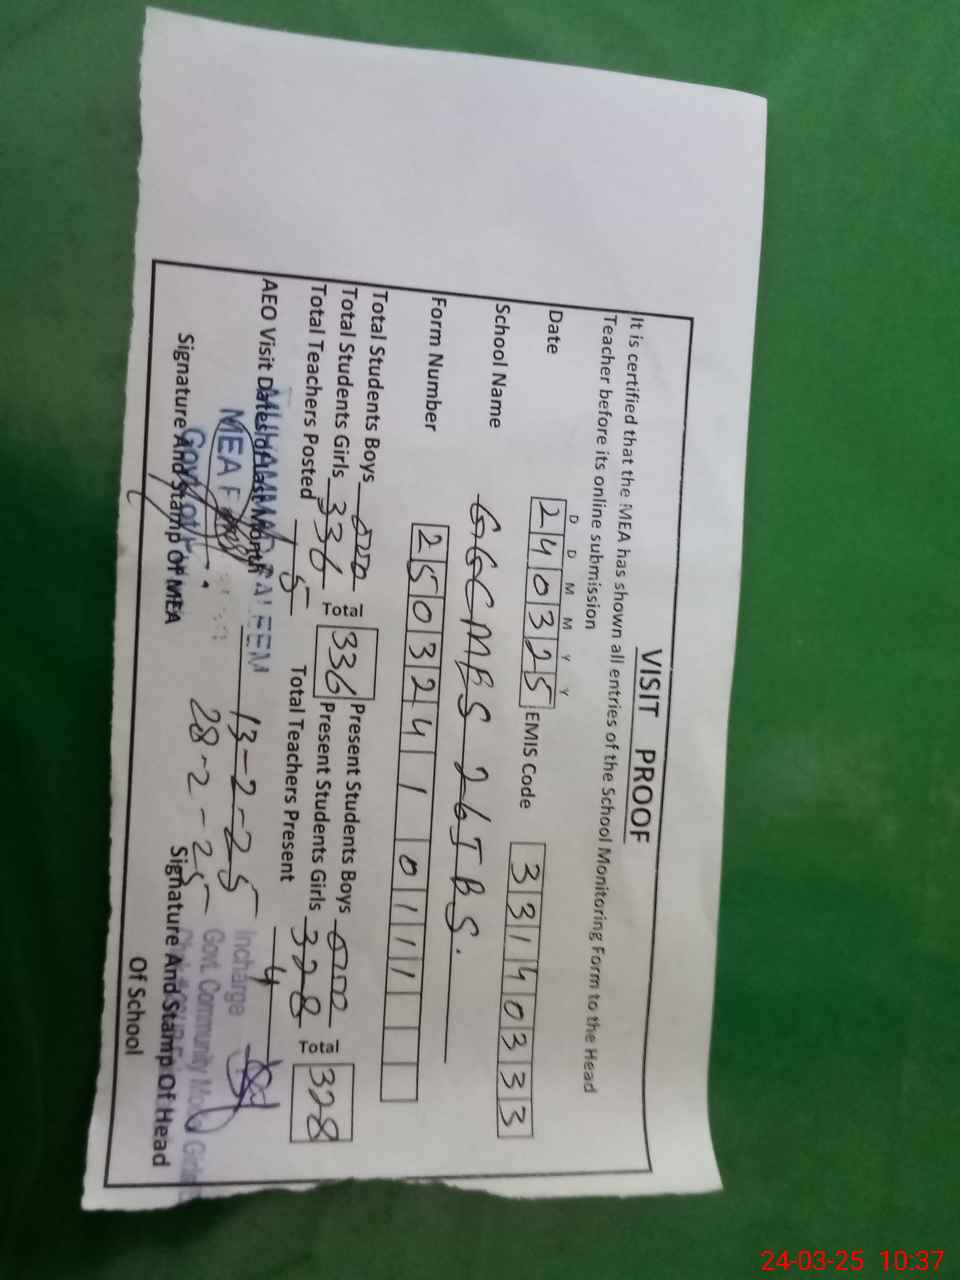 VISIT PROOF
It is certified that the MEA has shown all entries of the School Monitoring Form to the Head
Teacher before its online submission
D D M M Y Y
Date 240325 EMIS Code 33140333
School Name GGCMBS 26TBS.
Form Number 250324 1 0111
Total Students Boys 000 Present Students Boys 000
Total Students Girls 336 Total 336 Present Students Girls 328 Total 328
Total Teachers Posted 5 Total Teachers Present 4
AEO Visit Dates of Last Month 13-2-25
28-2-25
MEA
Incharge
Govt. Community Model Girls
Signature And Stamp Of MEA Signature And Stamp Of Head
Of School
24-03-25 10:37